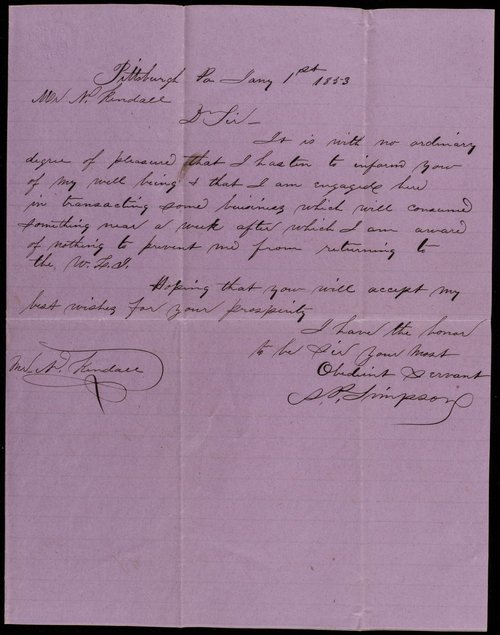 Pittsburgh Pa Jany 1st 1853
Mr N. Kendall
Dr Sir –
It is with no ordinary
degree of pleasure that I hasten to inform you
of my well being & that I am engaged here
in transacting some business which will consume
something near a week after which I am aware
of nothing to prevent me from returning to
the W. L. I.
Hoping that you will accept my
best wishes for your prosperity
I have the honor
to be Sir your most
Obedient Servant
S. P. Simpson
Mr. N. Kendall